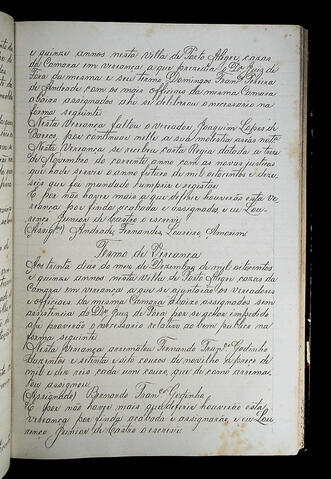 e quinze annos nesta Villa de Porto Alegre, cazas
da Camara em vereança a que presidiu o Dr Juiz de
Fora da mesma e seu termo, Domingos Franco Pereira
de Andrade com os mais officiaes da mesma Camara
abaixo assignados ahi se deliberou o necessario na
forma seguinte
Nesta Vereança faltou o vereador Joaquim Lopes de
Barros, por continuar
Nesta Vereança se recebeu carta Regia datada a treze
de Novembro do corrente anno com as novas justiças
que hade servir o anno futuro de mil oitocentos e deze
seis que foi mandado cumprir e registar
E por não haver mais a que deferir houverão esta ve
rança por finda acabada e assignados, e eu Lou
renço Junior de Castro o escrevi
(Assigdos) Andrade, Fernandes, Loureiro, Amorim
Termo de Vereança
Aos trinta dias do mez de Dezembro de mil oitocentos
e quinze annos nesta Villa de Porto Alegre cazas da
Camara em vereança a que se ajuntarão os vereadores
e officiaes da mesma Camara abaixo assignados sem
assistencia do Dor Juiz de Fora por se achar impedido
ahi proverão o necessario relativo ao bem publico na
forma seguinte
Nesta Vereança arrematou Fernando Franco Godinho
duzentos e oitenta e oito couros de novilho a preço de
mil e dez reis cada um couro, que de como arrema
tou assignou
(Assignado) Bernardo Franco Godinho
E por não haver mais que deferir houverão esta
vereança por finda acabada e assignarão, e eu Lou
renço Junior de Castro o escrevi